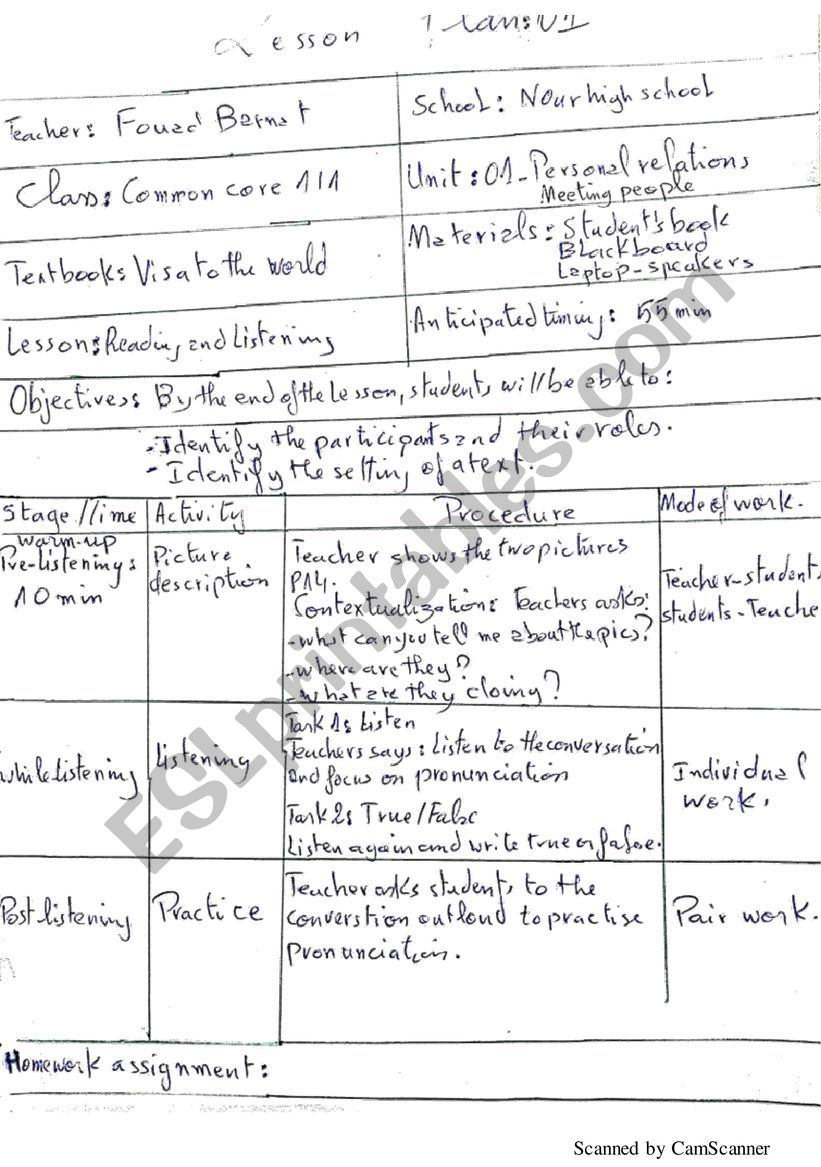 Lesson Plan: 01
Teacher: Fouad Bernat
School: Nour high school
Class: Common core 1/1
Unit: 01 - Personal relations
Meeting people
Textbook: Visa to the world
Materials: Student's book
Blackboard
Laptop - speakers
Lesson: Reading and Listening
Anticipated timing: 55 min
Objectives: By the end of the lesson, students will be able to:
- Identify the participants and their roles.
- Identify the setting of a text.
Stage / Time
Activity
Procedure
Mode of work.
Warm-up
Pre-listening:
10 min
Picture
description
Teacher shows the two pictures
P14.
Contextualization: Teachers asks:
- what can you tell me about the pics?
- where are they?
- what are they doing?
Teacher - student
students - Teache
while listening
listening
Task 1: Listen
Teachers says: Listen to the conversation
and focus on pronunciation
Task 2: True / False
Listen again and write true or false.
Individual
work.
Post listening
Practice
Teacher asks students to the
converstion outloud to practise
pronunciation.
Pair work.
Homework assignment:
ESLprintables.com
Scanned by CamScanner